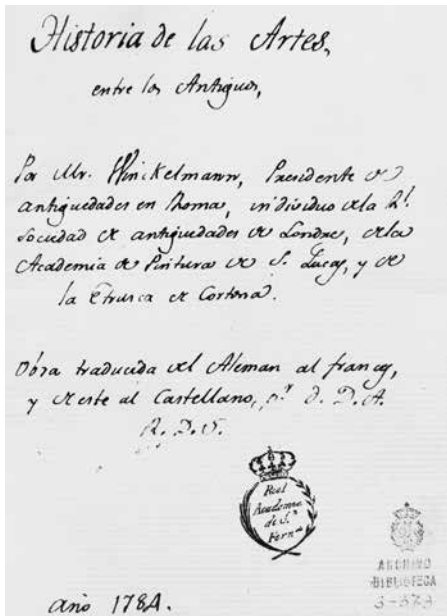 Historia de las Artes,
entre los Antiguos,
Por Mr. Winckelmann, Presidente de
antiguedades en Roma, individuo de la Rl.
Sociedad de antiguedades de Londre, de la
Academia de Pintura de S. Lucas, y de
la Etrusca de Cortona.
Obra traducida del Aleman al frances,
y de este al Castellano, pr. d. D. A.
R. D. S.
Real
Academia
de Sn.
Ferndo
ARCHIVO
BIBLIOTECA
año 1784.